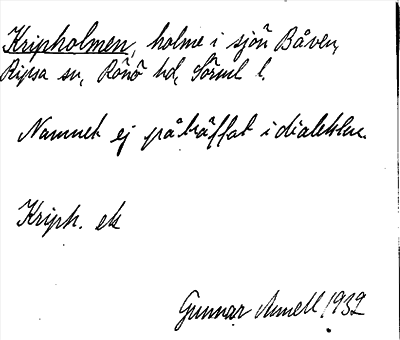 Kripholmen, holme i sjön Båven,
Ripsa sn, Rönö hd, Sörml l.
Namnet ej påträffat i dialekten.
Kriph. ek
Gunnar Annell 1932